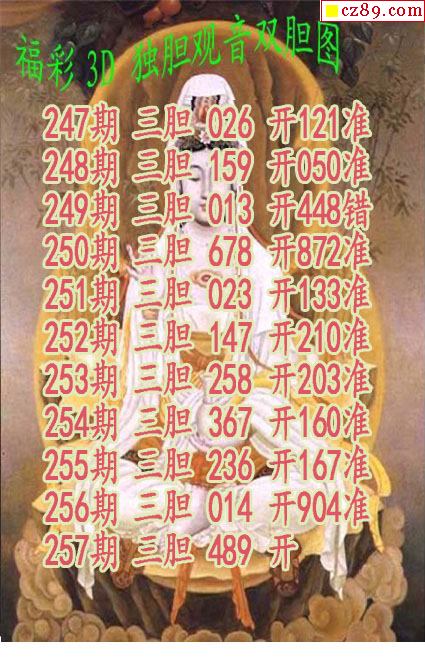 cz89.com
福彩 3D 独胆观音双胆图
247期 三胆 026 开121准
248期 三胆 159 开050准
249期 三胆 013 开448错
250期 三胆 678 开872准
251期 三胆 023 开133准
252期 三胆 147 开210准
253期 三胆 258 开203准
254期 三胆 367 开160准
255期 三胆 236 开167准
256期 三胆 014 开904准
257期 三胆 489 开